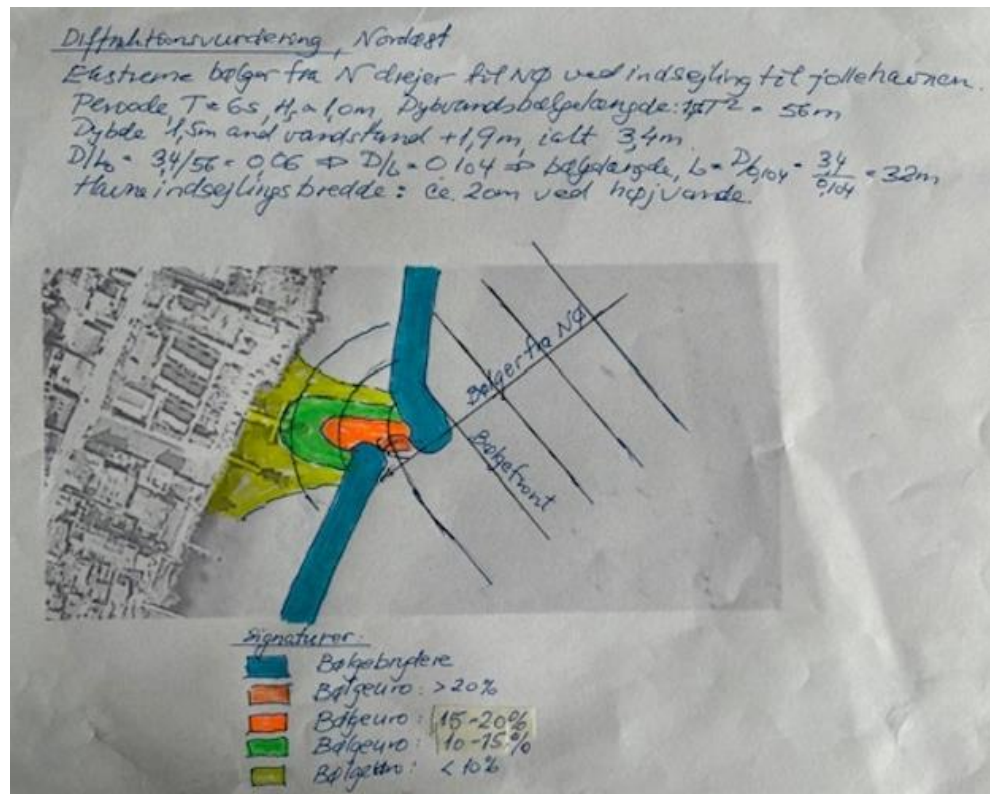 Diffraktionsvurdering, Nordøst
Ekstreme bølger fra N drejer til NØ ved indsejling til jollehavnen.
Periode, T = 6s, H ~ 1,0m, Dybvandsbølgelængde: T² = 56m
Dybde 1,5m and vandstand +1,9m, ialt 3,4m
D/L₀ = 3,4/56 = 0,06 ⇒ D/L = 0,104 ⇒ bølgelængde, L = D/0,104 = 3,4/0,104 = 32m
Havneindsejlingsbredde: Ca. 20m ved højvande.
Bølger fra NØ
Bølgefront
Signaturer:
Bølgebrydere
Bølgeuro: >20%
Bølgeuro: 15-20%
Bølgeuro: 10-15%
Bølgeuro: <10%